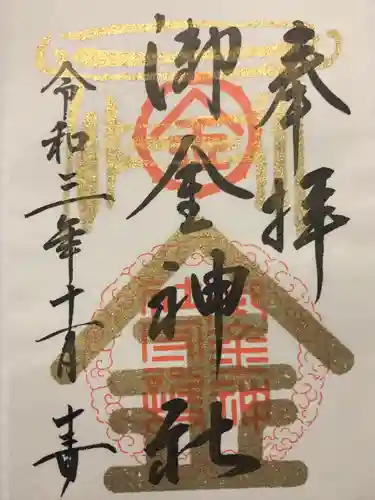 奉拝
御金神社
令和三年十一月
金